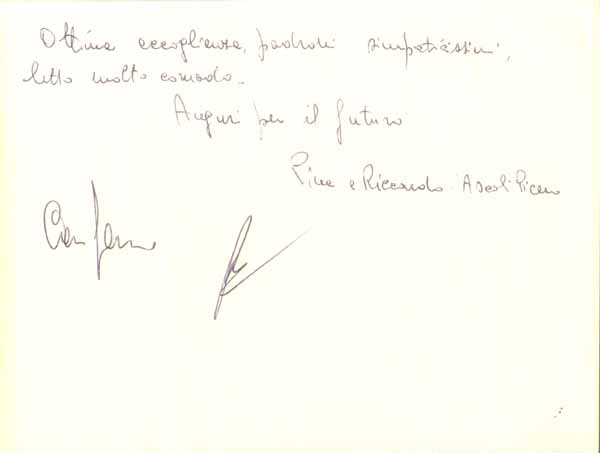 Ottima accoglienza, padroni simpaticissimi,
letto molto comodo.
Auguri per il futuro
Pina e Riccardo Ascoli Piceno